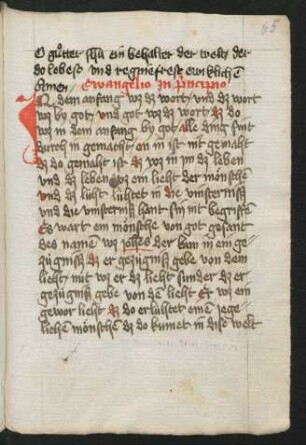 65
O gůtter ihu ein behalter der welt der
do lebest vnd regnierest ewiklichē
Amen Ewangelio In principio
In dem anfang wz dz wort / vnd dz wort
wz by got / vnd got wz dz wort / dz do
wz in dem anfang by got alle ding sint
durch in gemacht / on in ist nit gemaht
dz do gemaht ist dz wz in im dz leben
vnd dz leben wz ein lieht der mönschē
vnd dz lieht lúhtet in die vinsternissz
vnd die vinsternissz hant sin nit begriffē
Es wart ein mönsche von got gesant
des namen wz johēs der kan in ein ge-
zúgnissz dz er gezúgnissz gebe von dem
lieht / nit wz er dz lieht sunder dz er
gezúgnissz gebe von dē lieht Es wz ein
gewor lieht dz do erlúhtet einē jege-
lichen mönschē dz do kumet in dise welt